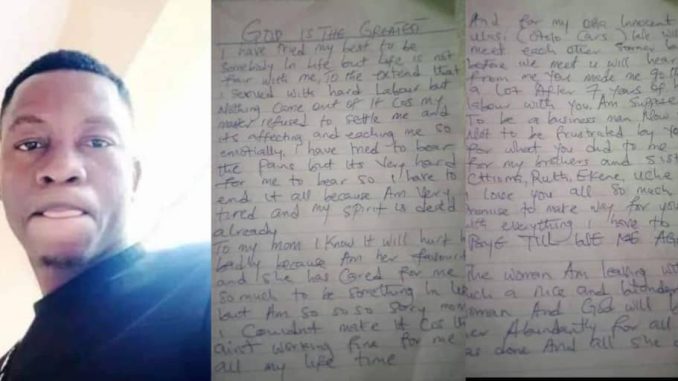 GOD IS THE GREATEST
I have tried my best to be
Somebody In life but life is not
fair with me, To the extend that
I served with hard Labour but
Nothing Came out of it Cos my
refused to Settle me and
its affecting and eaching me so
emotially, i have tried to bear
the pains but its Very hard
for me to bear so i have to
end it all because Am Very
tired and my spirit is
already
To my mom I Know it will hurt
badly because Am her favourite
and She has Cared for me
so much to be something In life
but Am so so so sorry mom
i Couldnt make it Cos
aint working fine for me
all my life time
And for my Innocent
Cars) We will
meet each other
before we meet u will hear
from me You made me go
a lot After 7 years of
labour with you. Am Suppose
To be a business man Now
Not to be frustrated by
for what you did to me
for my brothers and
Ruth, Ekene, Uche
I love you all So much
promise to make way for you
with everything i have to
BYE TILL WE
The woman Am leaving with
Such a Nice and
woman And God will
her Abundantly for all
has done And all she